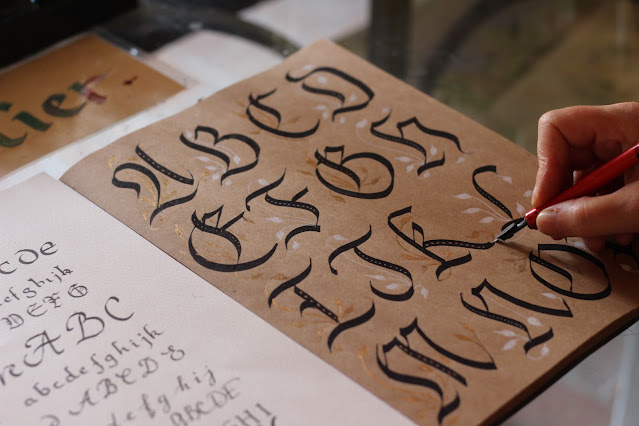 lier
A B C D
E F G H
I J K L
M N O
CDe
efghijk
DEFG
ABC
abcdefghijk
ABCDE
efghij
ABCDE